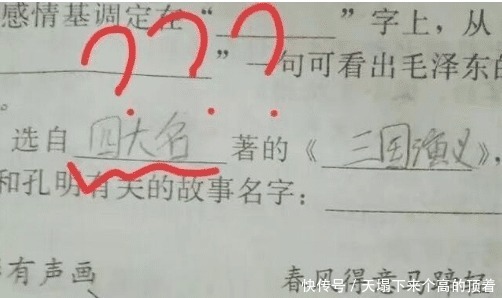 感情基调定在“________”字上，从
________”一句可看出毛泽东的
。
选自 四大名 著的《 三国演义》，
和孔明有关的故事名字：
有声画
春风得意马蹄轻
快传号/天塌下来个高的顶着
???